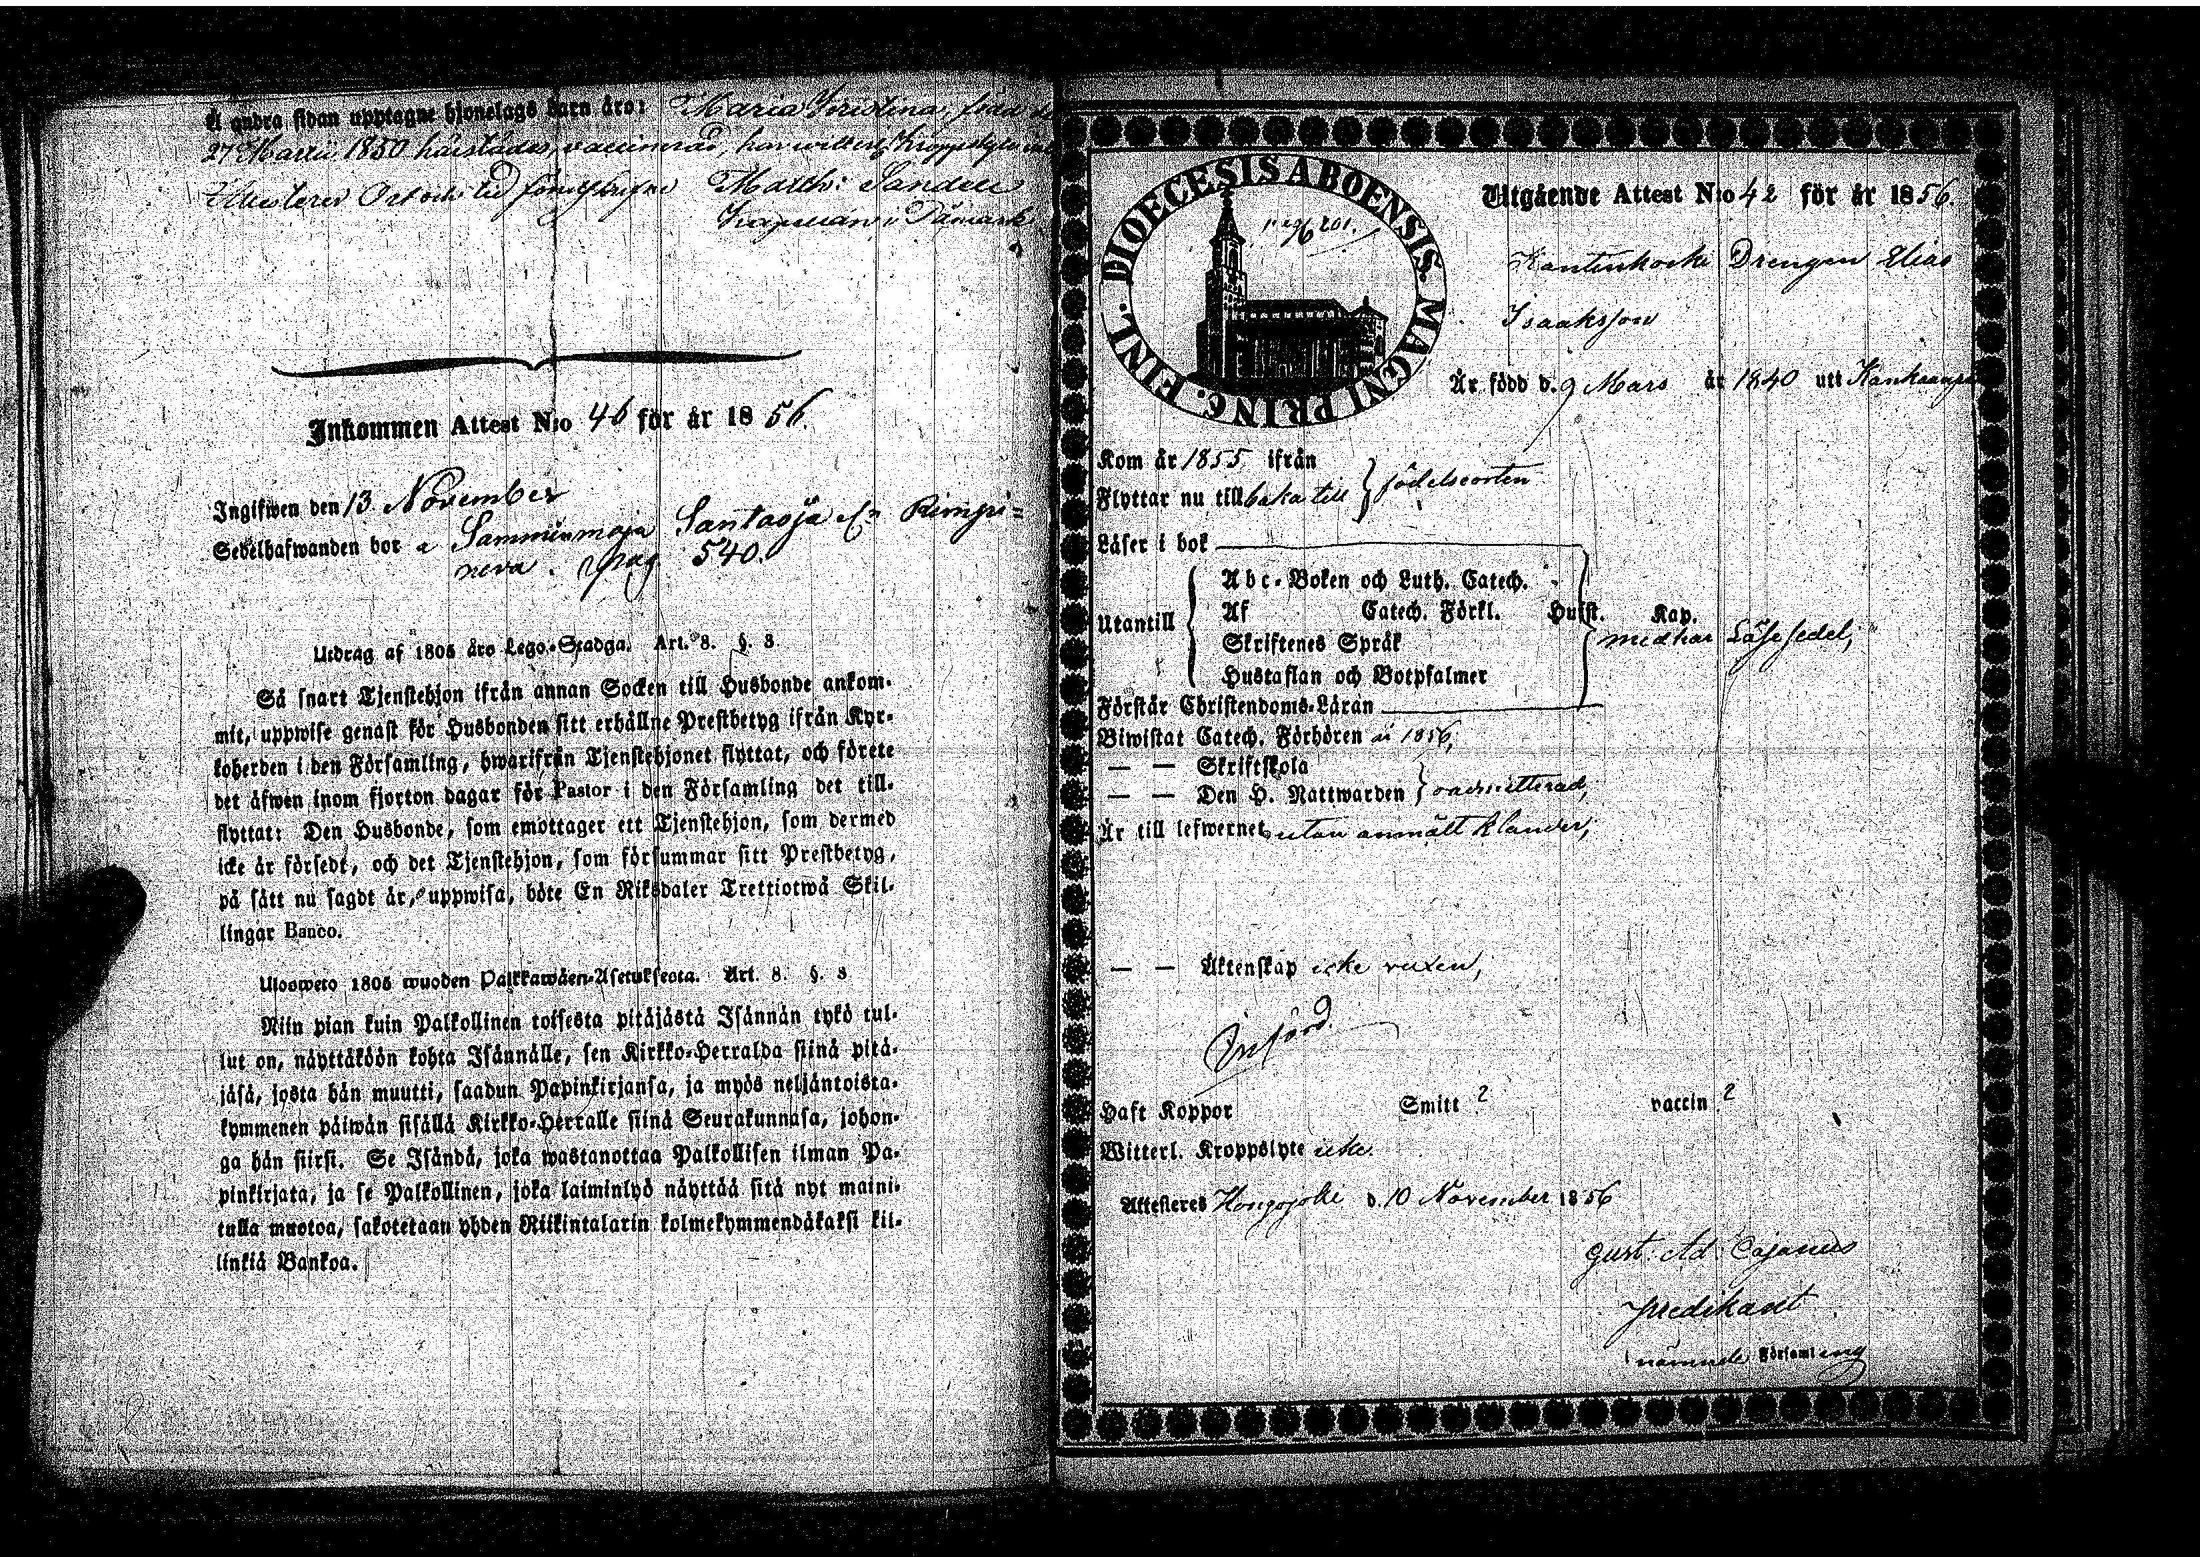 Å andra sidan upptagne hjonelags barn äro: Maria Christina, född d.
27 Martii 1850 härstädes, vaccinerad, har witterl. Kroppslyte
Attesterer Ort och tid föreskrifne Matth: Sandell
Kapellan i
Inkommen Attest N:o 46 för år 1856.
Ingifwen den 13 November
Sedelhafwanden bor å Sammunmaja Santaoja Rimpi=
neva. pag. 540.
Utdrag af 1805 års Lego-Stadga. Art. 8. §. 3
Så snart Tjenstehjon ifrån annan Socken till Husbonde ankom-
mit, uppwise genast för Husbonden sitt erhållne Prestbetyg ifrån Kyr-
koherden i den Församling, hwarifrån Tjenstehjonet flyttat, och förete
det äfwen inom fjorton dagar för Pastor i den Församling det till-
flyttat: Den Husbonde, som emottager ett Tjenstehjon, som dermed
icke är försedt, och det Tjenstehjon, som försummar sitt Prestbetyg,
på sätt nu sagdt är, uppwisa, böte En Riksdaler Trettiotwå Skil-
lingar Banco.
Ulosweto 1805 wuoden Palkkawäen-Asetuksesta. Art. 8. §. 3
Niin pian kuin Palkollinen toisesta pitäjästä Isännän tykö tul-
lut on, näyttäköön kohta Isännälle, sen Kirkko-Herralda siinä pitä-
jäsä, josta hän muutti, saadun Papinkirjansa, ja myös neljäntoista-
kymmenen päiwän sisällä Kirkko-Herralle siinä Seurakunnasa, johon-
ga hän siirsi. Se Isändä, joka wastanottaa Palkollisen ilman Pa-
pinkirjata, ja se Palkollinen, joka laiminlyö näyttää sitä nyt maini-
tulla muotoa, sakotetaan yhden Riikintalarin kolmekymmendäkaksi kil-
linkiä Bankoa.
DIOECESIS ABOENSIS MAGNI PRINC. FINL.
Utgående Attest N:o 42 för år 1856.
Drengen Elias
Isaaksson
Är född d. 9 Mars år 1840 uti Kankaanpä
Kom år 1855 ifrån
Flyttar nu tillbaka till } födelseorten
Läser i bok
Utantill
Abc-Boken och Luth. Catech.
Af Catech. Förkl. Hufst. Kap.
Skriftenes Språk
Hustaflan och Botpsalmer
medhar Läsesedel,
Förstår Christendoms-Läran
Biwistat Catech. Förhören år 1856,
— — Skriftskola
— — Den H. Nattwarden } oadmitterad,
Är till lefwernet utan anmält klander,
— — Äktenskap icke vuxen,
Införd.
Haft Koppor Smitt ? vaccin ?
Witterl. Kroppslyte icke.
Attesteres Hongojoki d. 10 November 1856
Gust. Ad. Cajanus
predikant
i nämnde Församling